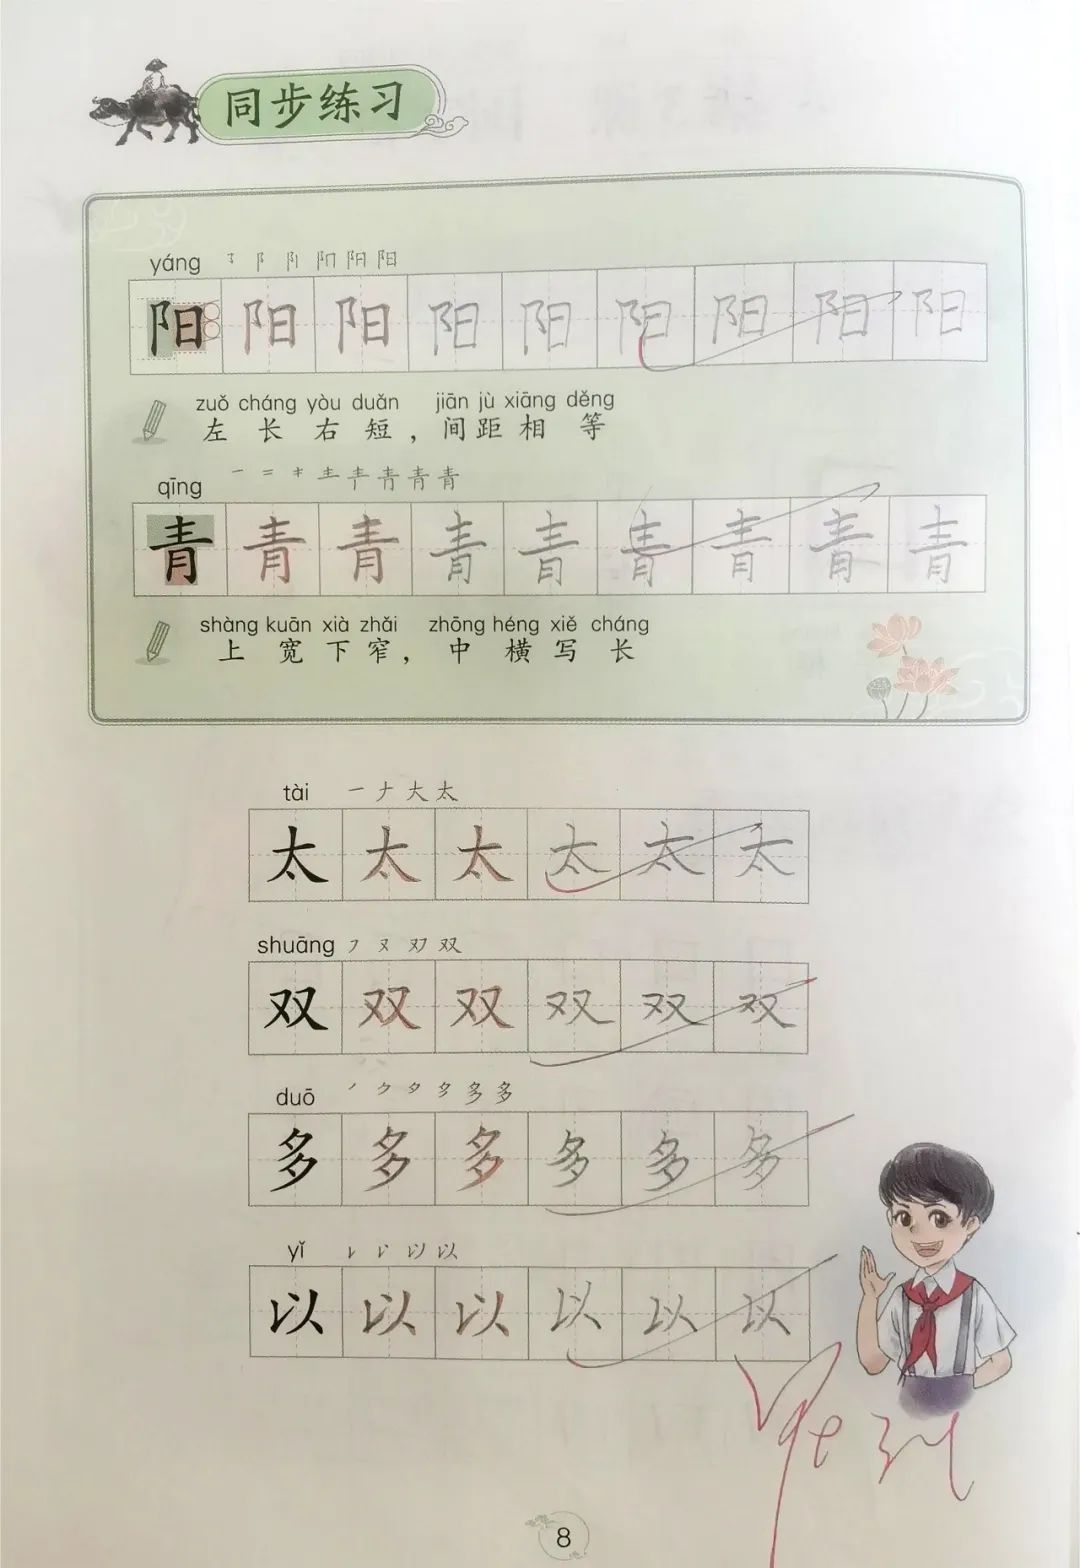 同步练习
yáng
阳 阳 阳 阳 阳 阳 阳 阳 阳
zuǒ cháng yòu duǎn jiān jù xiāng děng
左长右短，间距相等
qīng
青 青 青 青 青 青 青 青 青
shàng kuān xià zhǎi zhōng héng xiě cháng
上宽下窄，中横写长
tài 一 ナ 大 太
太 太 太 太 太 太
shuāng ㇇ 又 刄 双
双 双 双 双 双 双
duō
多 多 多 多 多 多
yǐ
以 以 以 以 以 以
8